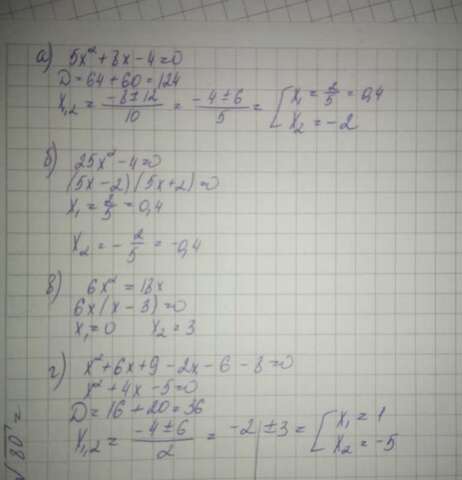 а) 5x² + 8x - 4 = 0
D = 64 + 60 = 124
x₁,₂ = (-8 ± 12)/10 = (-4 ± 6)/5 = [ x₁ = 2/5 = 0,4
x₂ = -2
б) 25x² - 4 = 0
(5x - 2)(5x + 2) = 0
x₁ = 2/5 = 0,4
x₂ = -2/5 = -0,4
в) 6x² = 18x
6x(x - 3) = 0
x₁ = 0 x₂ = 3
г) x² + 6x + 9 - 2x - 6 - 8 = 0
x² + 4x - 5 = 0
D = 16 + 20 = 36
x₁,₂ = (-4 ± 6)/2 = -2 ± 3 = [ x₁ = 1
x₂ = -5